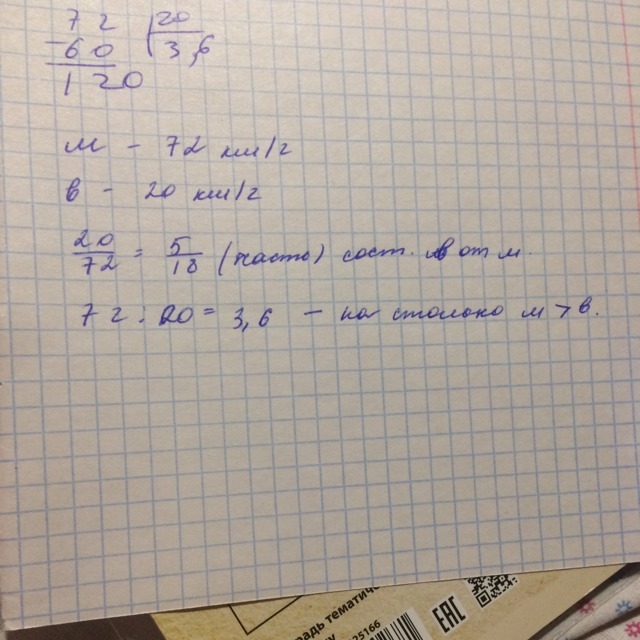 72 | 20
-60 | 3,6
120
м - 72 км/г
в - 20 км/г
20/72 = 5/18 (часть) сост. в от м.
72 : 20 = 3,6 - на столько м > в.
традь тематичес
25166
EAC